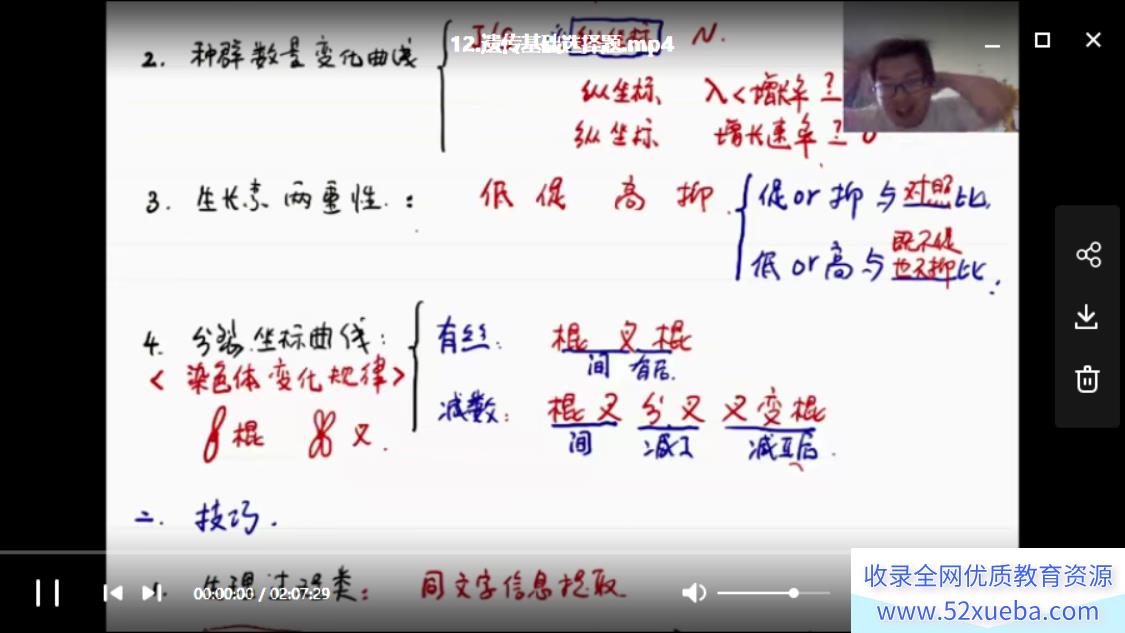 12.遗传基础选择题.mp4
2. 种群数量变化曲线
N.
纵坐标 λ<增长率?
纵坐标 增长速率?
3. 生长素两重性: 低促 高抑. 促or抑与对照比,
既不促
低or高与也不抑比.
4. 分裂坐标曲线: 有丝: 棍叉棍
间 有后.
<染色体变化规律>
减数: 棍叉 分叉 叉变棍
棍 叉.
间 减I 减II后.
二. 技巧.
类: 同文字信息提取
00:00:00 / 02:07:29
收录全网优质教育资源
www.52xueba.com